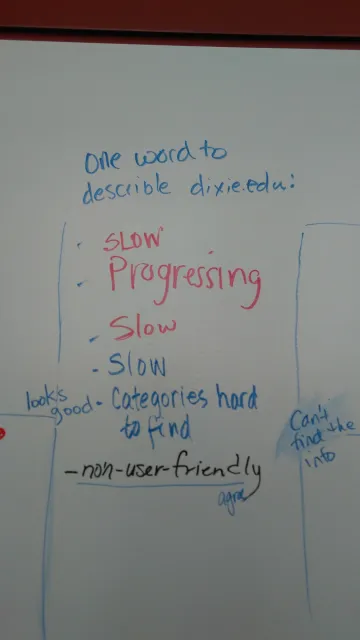 One word to
describle dixie.edu:
· SLOW
· Progressing
- Slow
- SLOW
look's
good - Categories hard
to find
- non-user-friendly
agree
Can't
find the
info